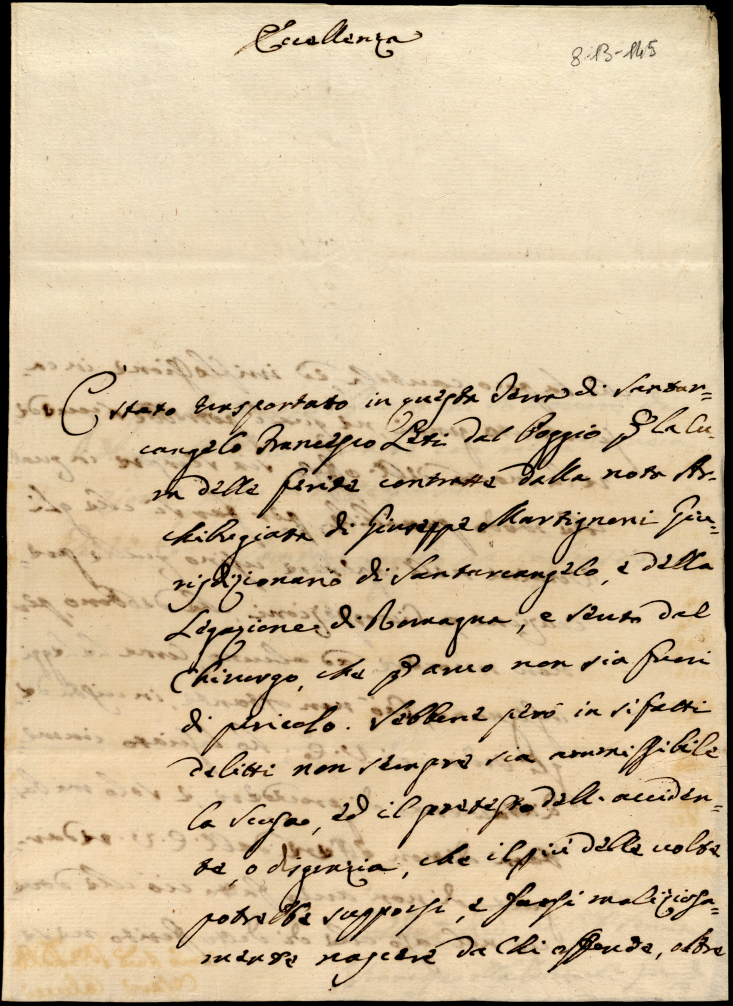 Eccellenza
8-13-145
È stato trasportato in questa Terra di Santar=
cangelo Francesco Leti dal Poggio p la Cu=
ra delle ferite contratte dalla nota Ar=
chibugiata di Giuseppe Martignoni Giu=
risdizionario di Santarcangelo, e della
Legazione di Romagna, e sento dal
Chirurgo, che p anco non sia fuori
di pericolo. Sebbene però in sifatti
delitti non sempre sia ammissibile
la scusa, ed il pretesto dell'acciden=
te, o disgrazia, che il più delle volte
potrebbe supporsi, e farsi maliziosa=
mente nascere da chi offende, oltre